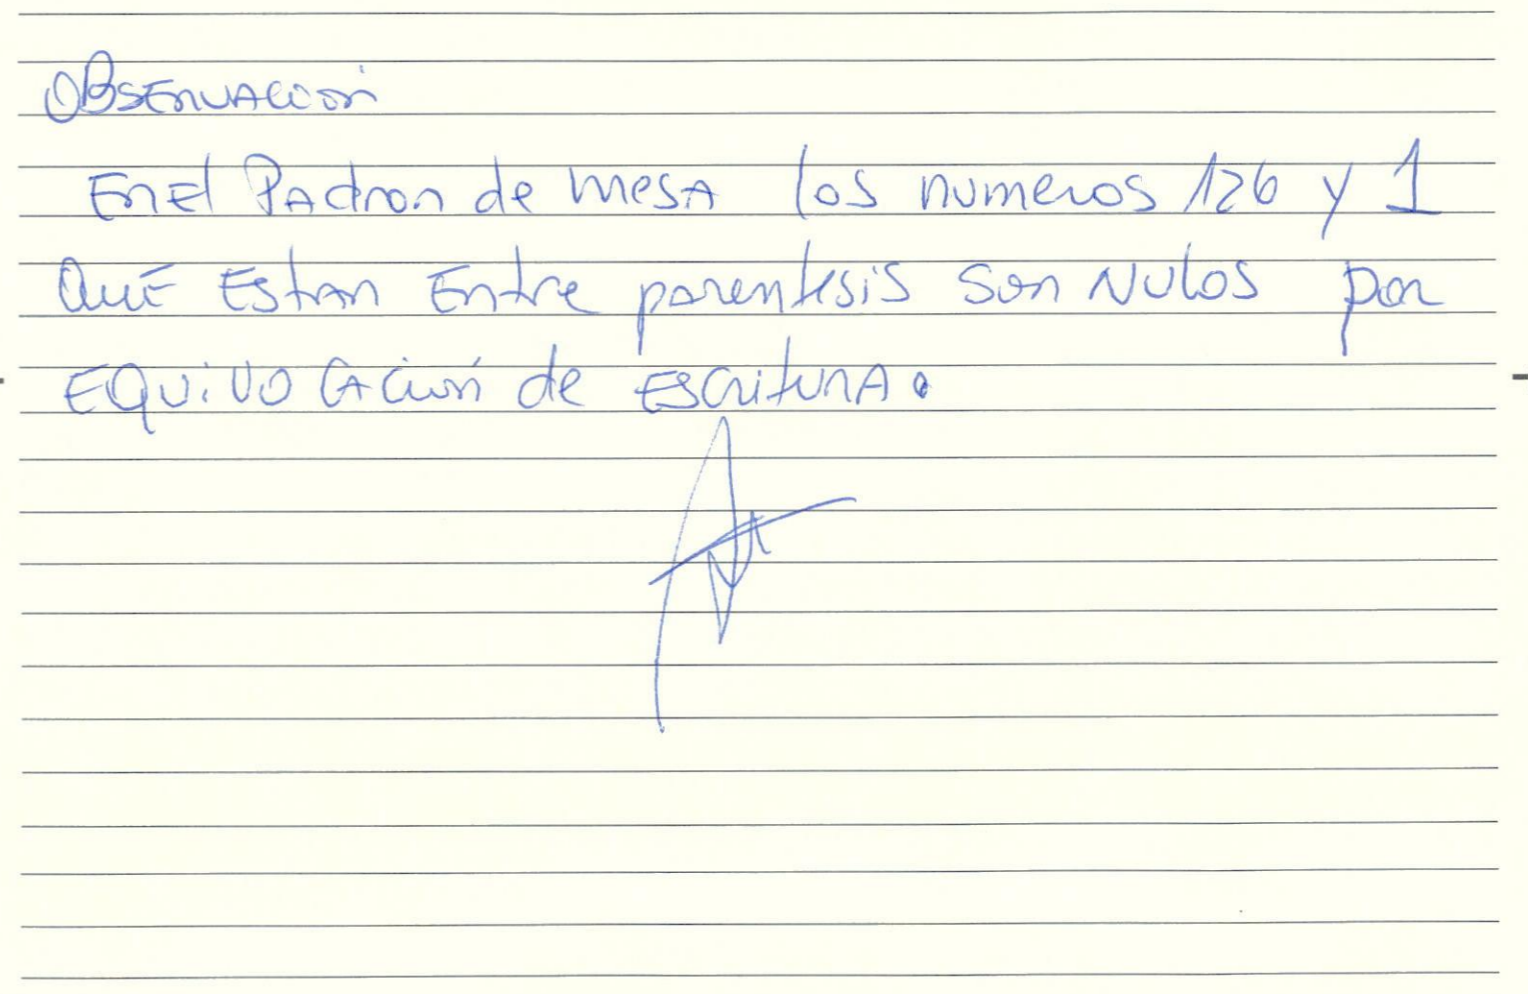 Observación
En El Padron de mesa los numeros 126 y 1
Que Estan Entre parentesis son Nulos por
Equivocación de Escritura.